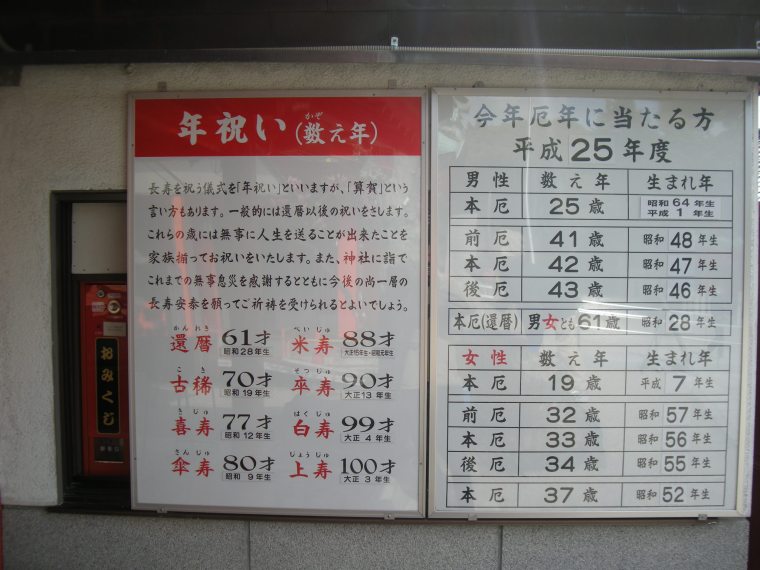 年祝い(数え年)
かぞ
長寿を祝う儀式を「年祝い」といいますが、「算賀」という
言い方もあります。一般的には還暦以後の祝いをさします。
これらの歳には無事に人生を送ることが出来たことを
家族揃ってお祝いをいたします。また、神社に詣で
これまでの無事息災を感謝するとともに今後の尚一層の
長寿安泰を願ってご祈祷を受けられるとよいでしょう。
かんれき
還暦 61才 昭和28年生
べいじゅ
米寿 88才 大正15年生・昭和元年生
こき
古稀 70才 昭和19年生
そつじゅ
卒寿 90才 大正13年生
きじゅ
喜寿 77才 昭和12年生
はくじゅ
白寿 99才 大正4年生
さんじゅ
傘寿 80才 昭和9年生
じょうじゅ
上寿 100才 大正3年生
今年厄年に当たる方
平成25年度
男性 数え年 生まれ年
本厄 25歳 昭和64年生 平成1年生
前厄 41歳 昭和48年生
本厄 42歳 昭和47年生
後厄 43歳 昭和46年生
本厄(還暦) 男女とも61歳 昭和28年生
女性 数え年 生まれ年
本厄 19歳 平成7年生
前厄 32歳 昭和57年生
本厄 33歳 昭和56年生
後厄 34歳 昭和55年生
本厄 37歳 昭和52年生
おみくじ